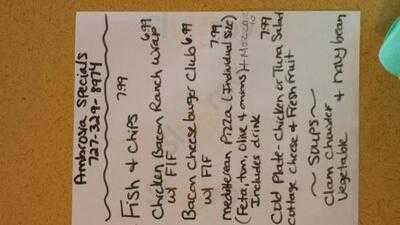 Ambrosia Specials
727-329-8974
Fish & Chips 7.99
Chicken Bacon Ranch Wrap 6.99
w/ F/F
Bacon Cheeseburger Club 6.99
w/ F/F
Mediterrean Pizza (Individual Size) 7.99
(Feta, tom, olive & onions)
Includes drink
Cold Plate - Chicken or Tuna Salad 7.99
Cottage Cheese & Fresh Fruit
~ Soups ~
Clam Chowder
Vegetable & Navy bean